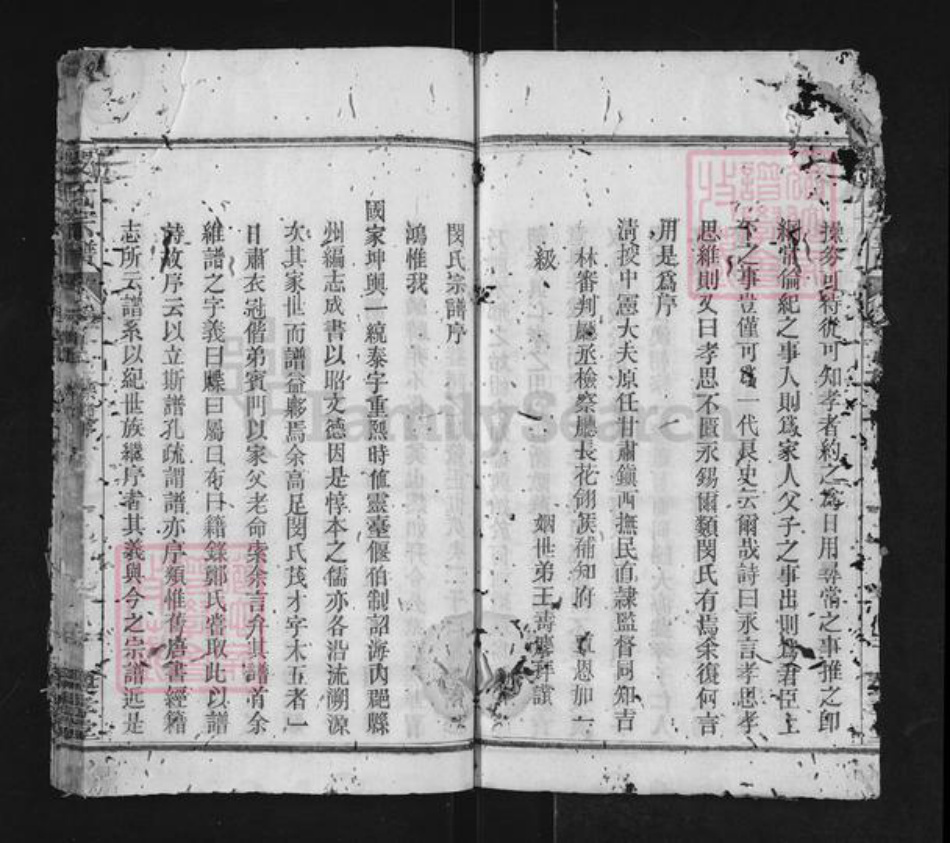 操券可待從可知孝者約之爲日用尋常之事推之即
綱常倫紀之事人則爲家人父子之事出則爲君臣上
下之事豈僅可爲一代良史云爾哉詩曰永言孝思孝
思維則又曰孝思不匱永錫爾類閔氏有焉余復何言
用是爲序
清授中憲大夫原任甘肅鎮西撫民直隸監督同知吉
林審判廳丞檢察廳長花翎候補知府 覃恩加一
級 姻世弟王 拜譔
閔氏宗譜序
鴻惟我
國家坤輿一統泰宇重熙時惟靈臺偃伯制詔海內郡縣
州編志成書以昭文德因是惇本之儒亦各沿流溯源
次其家世而譜益夥焉余高足閔氏茂才字木五者一
日肅衣冠偕弟賓門以家父老命索余言弁其譜首余
維譜之字義曰牒曰屬曰布曰籍錄鄭氏嘗取此以譜
詩故序云以立斯譜孔疏謂譜亦序類惟舊唐書經籍
志所云譜系以紀世族繼序者其義與今之宗譜近是
宗譜
FamilySearch